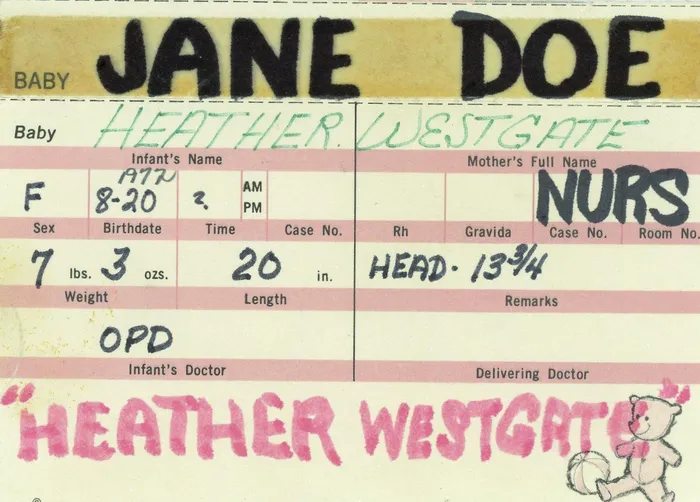 BABY JANE DOE
Baby HEATHER WESTGATE
Infant's Name Mother's Full Name
F 8-20 ? AM PM NURS
Sex Birthdate Time Case No. Rh Gravida Case No. Room No.
7 lbs. 3 ozs. 20 in. HEAD. 13 3/4
Weight Length Remarks
OPD
Infant's Doctor Delivering Doctor
"HEATHER WESTGATE"